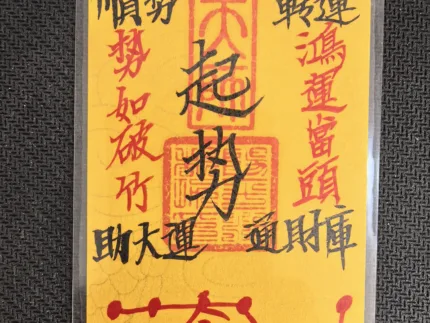 順势 轉運
鴻運當頭
起势
勢如破竹
助大運 通財庫